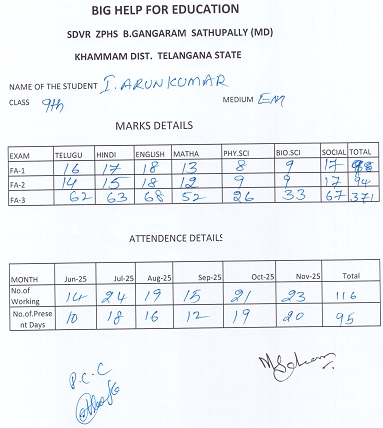 BIG HELP FOR EDUCATION
SDVR ZPHS B.GANGARAM SATHUPALLY (MD)
KHAMMAM DIST. TELANGANA STATE
NAME OF THE STUDENT I. ARUN KUMAR
CLASS 9th MEDIUM EM
MARKS DETAILS
EXAM TELUGU HINDI ENGLISH MATHA PHY.SCI BIO.SCI SOCIAL TOTAL
FA-1 16 17 18 13 8 9 17 98
FA-2 14 15 18 12 9 9 17 94
FA-3 62 63 68 52 26 33 67 371
ATTENDENCE DETAILS
MONTH Jun-25 Jul-25 Aug-25 Sep-25 Oct-25 Nov-25 Total
No.of Working 14 24 19 15 21 23 116
No.of.Present Days 10 18 16 12 19 20 95
P.C.C